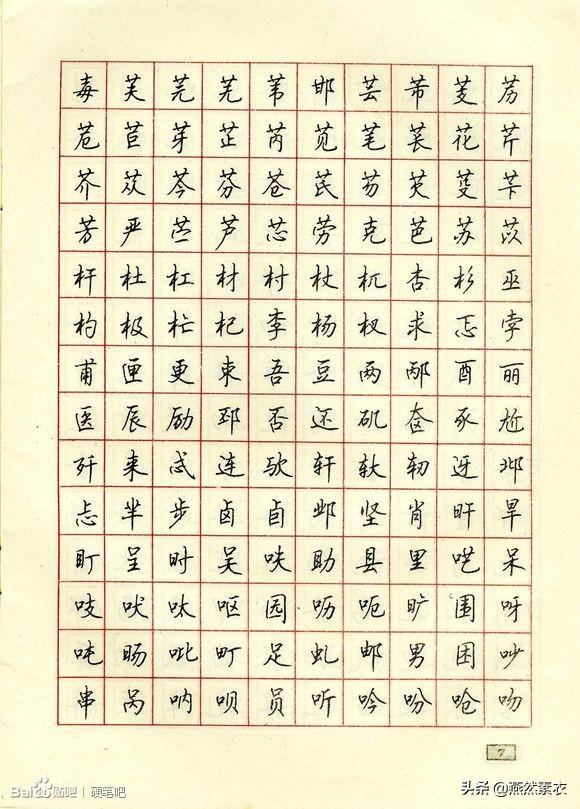 毐芙芫芜苇邯芸芾芰苈
苊苣芽芷芮苋芼苌花芹
芥苁芩芬苍芪芴芡芟苄
芳严苎芦芯劳克芭苏苡
杆杜杠材村杖杌杏杉巫
杓极杧杞李杨杈求忑孛
甫匣更束吾豆两邴酉丽
医辰励邳否还矶奁豕尬
歼来忒连欤轩轪轫迓邶
忐芈步卤卣邺坚肖旰旱
盯呈时吴呋助县里呓呆
吱吠呔呕园呖呃旷围呀
吨旸吡町足虬邮男困吵
串呙呐呗员听吟吩呛吻
7
Bai贴吧 | 硬笔吧
头条 @燕然素衣